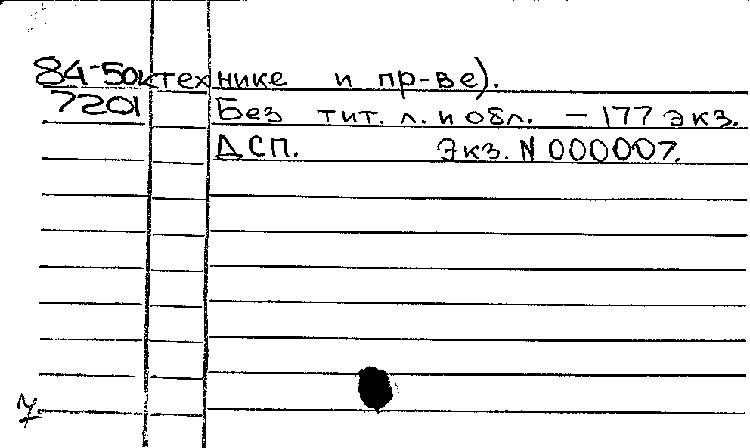 84-50к технике и пр-ве).
7201 Без тит. л. и обл. — 177 экз.
ДСП. Экз. N 000007.